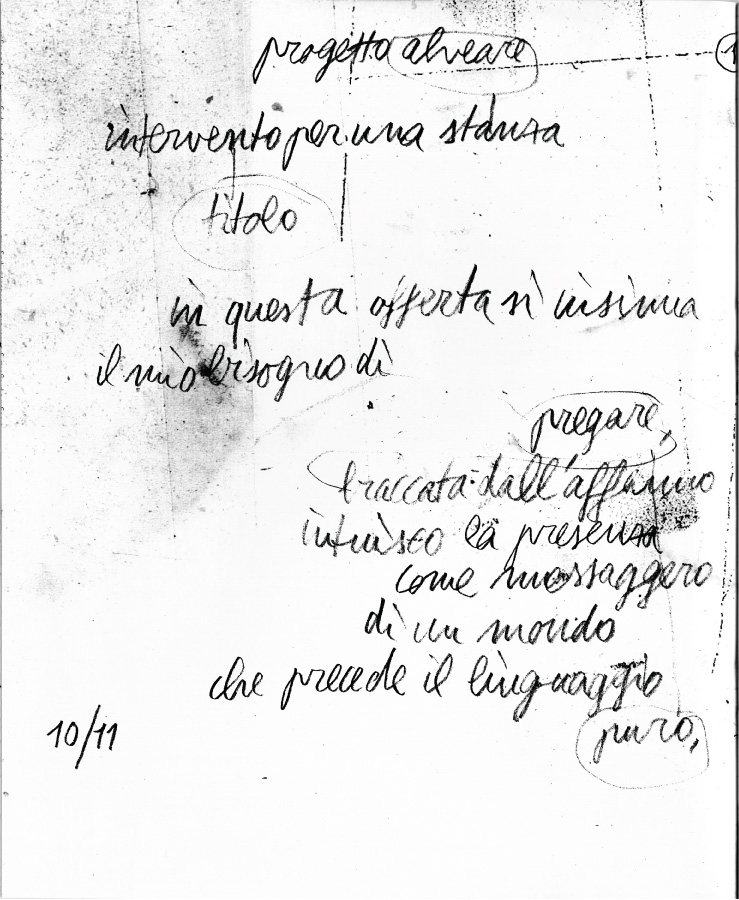 progetto alveare
1
intervento per una stanza
titolo
in questa offerta si insinua
il mio bisogno di
pregare,
braccata dall'affanno
intuisco la presenza
come messaggero
di un mondo
che precede il linguaggio
puro,
10/11